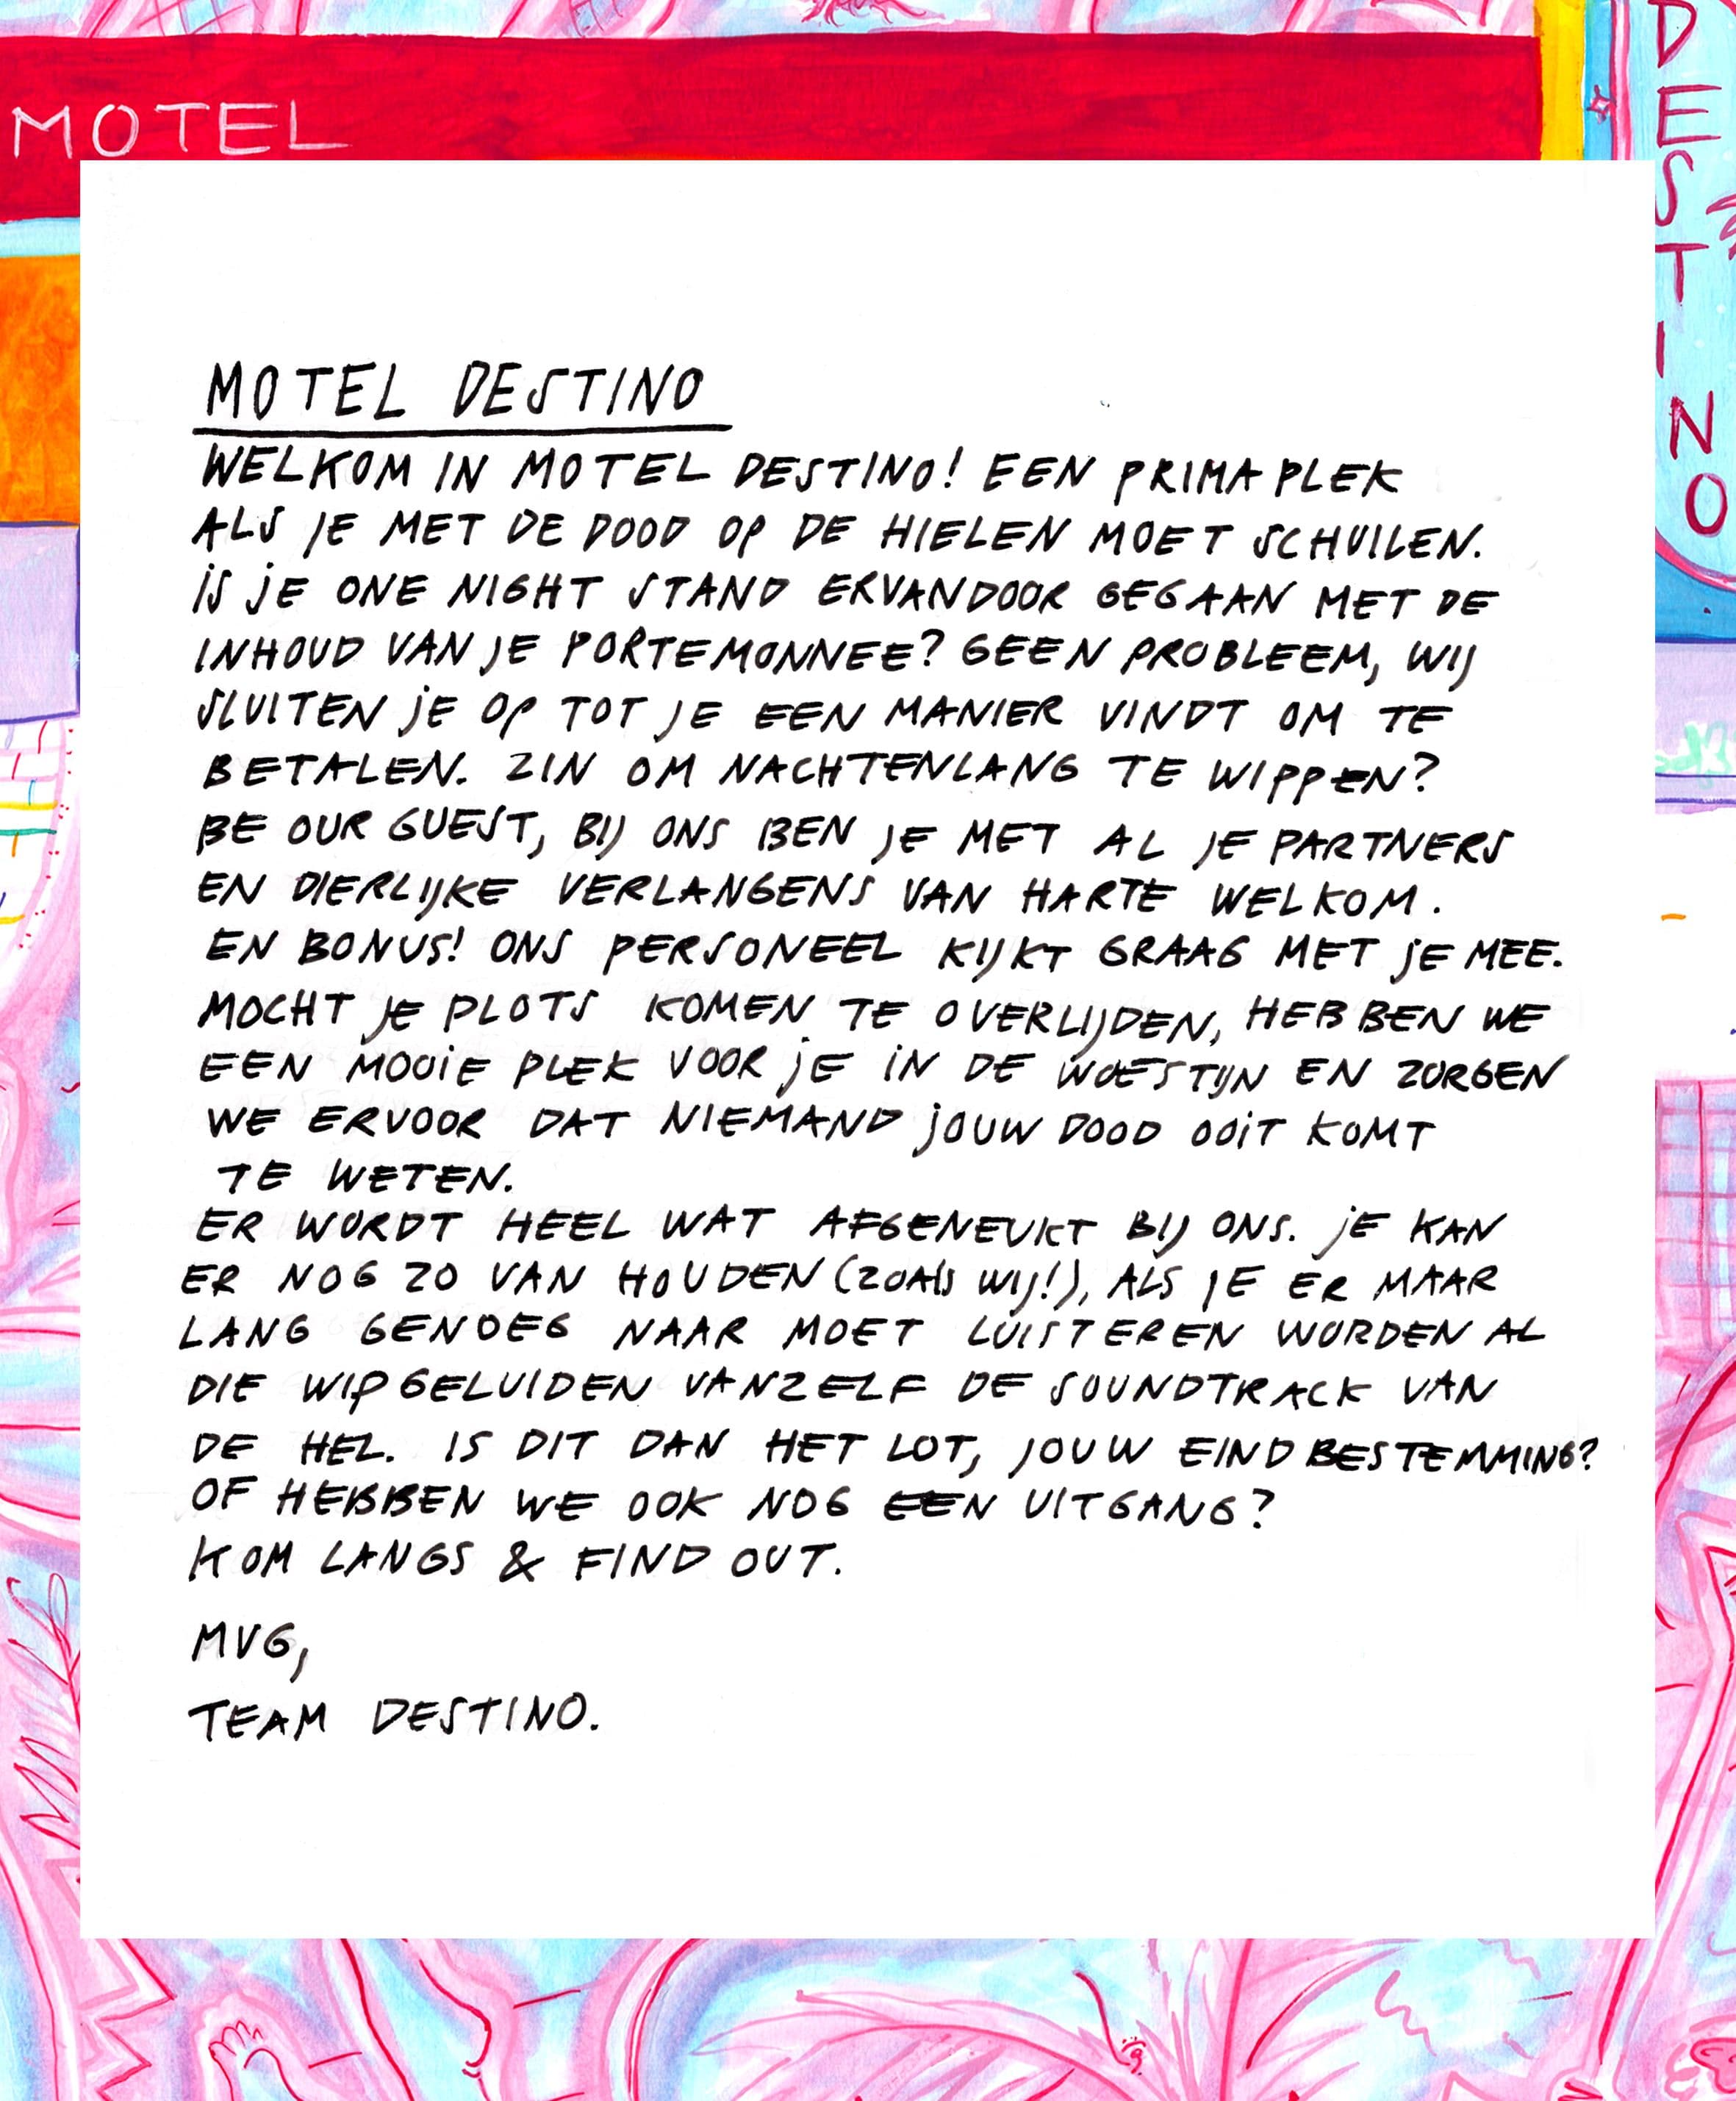 MOTEL
DESTINO
MOTEL DESTINO
WELKOM IN MOTEL DESTINO! EEN PRIMA PLEK
ALS JE MET DE DOOD OP DE HIELEN MOET SCHUILEN.
IS JE ONE NIGHT STAND ERVANDOOR GEGAAN MET DE
INHOUD VAN JE PORTEMONNEE? GEEN PROBLEEM, WIJ
SLUITEN JE OP TOT JE EEN MANIER VINDT OM TE
BETALEN. ZIN OM NACHTENLANG TE WIPPEN?
BE OUR GUEST, BIJ ONS BEN JE MET AL JE PARTNERS
EN DIERLIJKE VERLANGENS VAN HARTE WELKOM.
EN BONUS! ONS PERSONEEL KIJKT GRAAG MET JE MEE.
MOCHT JE PLOTS KOMEN TE OVERLIJDEN, HEBBEN WE
EEN MOOIE PLEK VOOR JE IN DE WOESTIJN EN ZORGEN
WE ERVOOR DAT NIEMAND JOUW DOOD OOIT KOMT
TE WETEN.
ER WORDT HEEL WAT AFGENEUKT BIJ ONS. JE KAN
ER NOG ZO VAN HOUDEN (ZOALS WIJ!), ALS JE ER MAAR
LANG GENOEG NAAR MOET LUISTEREN WORDEN AL
DIE WIPGELUIDEN VANZELF DE SOUNDTRACK VAN
DE HEL. IS DIT DAN HET LOT, JOUW EINDBESTEMMING?
OF HEBBEN WE OOK NOG EEN UITGANG?
KOM LANGS & FIND OUT.
MVG,
TEAM DESTINO.